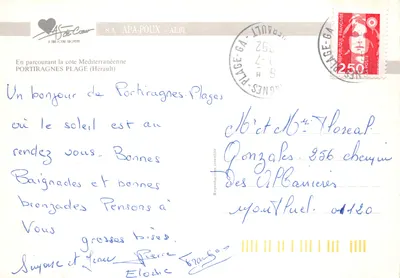 APA-POUX - ALBI
En parcourant la côte Méditerranéenne
PORTIRAGNES PLAGE (Hérault)
Un bonjour de Portiragnes-Plages
où le soleil est au
rendez vous. Bonnes
Baignades et bonnes
bronzades Pensons à
Vous
grosses bises.
Suzanne et
Pierre
Elodie
PORTIRAGNES-PLAGE-GA
HERAULT
2,50
Mr et Mme Floreal
Gonzales. 256 chemin
Des
Montluel 01120